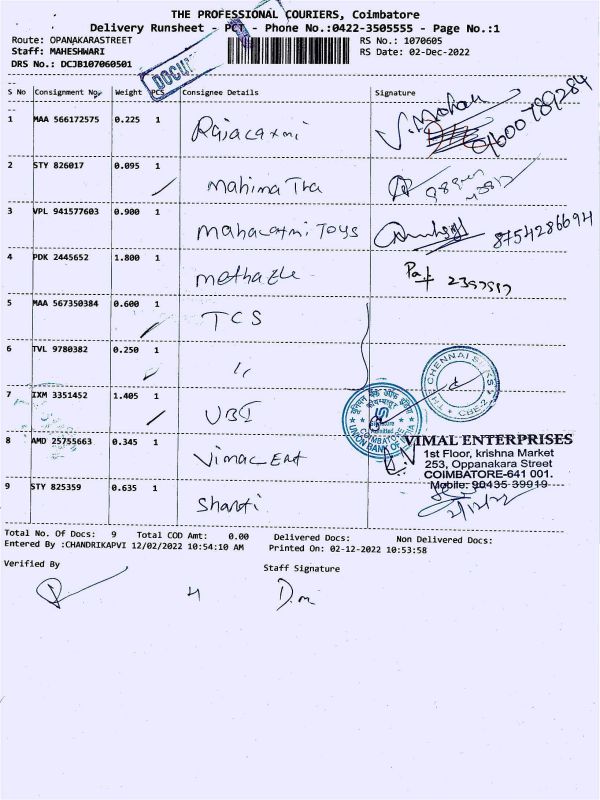 THE PROFESSIONAL COURIERS, Coimbatore
Delivery Runsheet - PCT - Phone No.:0422-3505555 - Page No.:1
Route: OPANAKARASTREET
RS No.: 1070605
Staff: MAHESHWARI
RS Date: 02-Dec-2022
DRS No.: DCJB107060501
DOCU
S No Consignment No. Weight PCS Consignee Details Signature
1 MAA 566172575 0.225 1 Rajalaxmi
2 STY 826017 0.095 1 Mahima Tra
3 VPL 941577603 0.900 1 Mahalaxmi Toys 8754286694
4 PDK 2445652 1.800 1
5 MAA 567350384 0.600 1 TCS
6 TVL 9780382 0.250 1 "
THE CHENNAI SILKS
CBE-1
7 IXM 3351452 1.405 1 UBI
UNION BANK OF INDIA
COIMBATORE
8 AMD 25755663 0.345 1 Vimal Ent
VIMAL ENTERPRISES
1st Floor, krishna Market
253, Oppanakara Street
COIMBATORE-641 001.
Mobile: 90435 39919
9 STY 825359 0.635 1 Shanti
2/12/22
Total No. Of Docs: 9 Total COD Amt: 0.00 Delivered Docs: Non Delivered Docs:
Entered By :CHANDRIKAPVI 12/02/2022 10:54:10 AM Printed On: 02-12-2022 10:53:58
Verified By Staff Signature